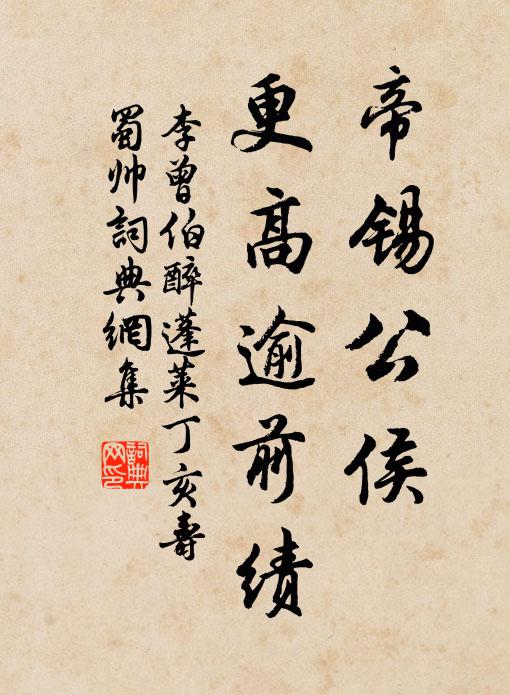 帝锡公侯
更高逾前绩
李曾伯醉蓬莱丁亥寿
蜀帅詞典網集
詞典网印